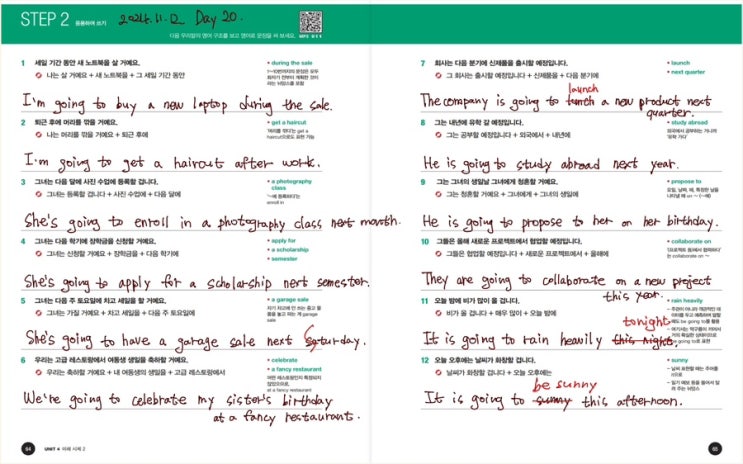 STEP 2 응용하여 쓰기 2024.11.12 Day 20.
다음 우리말의 영어 구조를 보고 영어로 문장을 써 보세요.
1 세일 기간 동안 새 노트북을 살 거예요.
나는 살 거예요 + 새 노트북을 + 그 세일 기간 동안
• during the sale
I'm going to buy a new laptop during the sale.
2 퇴근 후에 머리를 깎을 거예요.
나는 머리를 깎을 거예요 + 퇴근 후에
• get a haircut
I'm going to get a haircut after work.
3 그녀는 다음 달에 사진 수업에 등록할 겁니다.
그녀는 등록할 겁니다 + 사진 수업에 + 다음 달에
• a photography
class
enroll in
She's going to enroll in a photography class next month.
4 그녀는 다음 학기에 장학금을 신청할 거예요.
그녀는 신청할 거예요 + 장학금을 + 다음 학기에
• apply for
• a scholarship
• semester
She's going to apply for a scholarship next semester.
5 그녀는 다음 주 토요일에 차고 세일을 할 거예요.
그녀는 가질 거예요 + 차고 세일을 + 다음 주 토요일에
• a garage sale
She's going to have a garage sale next Saturday.
6 우리는 고급 레스토랑에서 여동생 생일을 축하할 거예요.
우리는 축하할 거예요 + 내 여동생의 생일을 + 고급 레스토랑에서
• celebrate
• a fancy restaurant
at a fancy restaurant
We're going to celebrate my sister's birthday
at a fancy restaurant.
64 UNIT 4 미래 시제 2
7 회사는 다음 분기에 신제품을 출시할 예정입니다.
그 회사는 출시할 예정입니다 + 신제품을 + 다음 분기에
• launch
• next quarter
launch
The company is going to lunch a new product next
quarter.
8 그는 내년에 유학 갈 예정입니다.
그는 공부할 예정입니다 + 외국에서 + 내년에
• study abroad
He is going to study abroad next year.
9 그는 그녀의 생일날 그녀에게 청혼할 거예요.
그는 청혼할 거예요 + 그녀에게 + 그녀의 생일에
• propose to
He is going to propose to her on her birthday.
10 그들은 올해 새로운 프로젝트에서 협업할 예정입니다.
그들은 협업할 예정입니다 + 새로운 프로젝트에서 + 올해에
• collaborate on
They are going to collaborate on a new project
this year.
11 오늘 밤에 비가 많이 올 겁니다.
비가 올 겁니다 + 매우 많이 + 오늘 밤에
• rain heavily
tonight
It is going to rain heavily this night.
12 오늘 오후에는 날씨가 화창할 겁니다.
날씨가 화창할 겁니다 + 오늘 오후에는
• sunny
be sunny
It is going to sunny this afternoon.
65